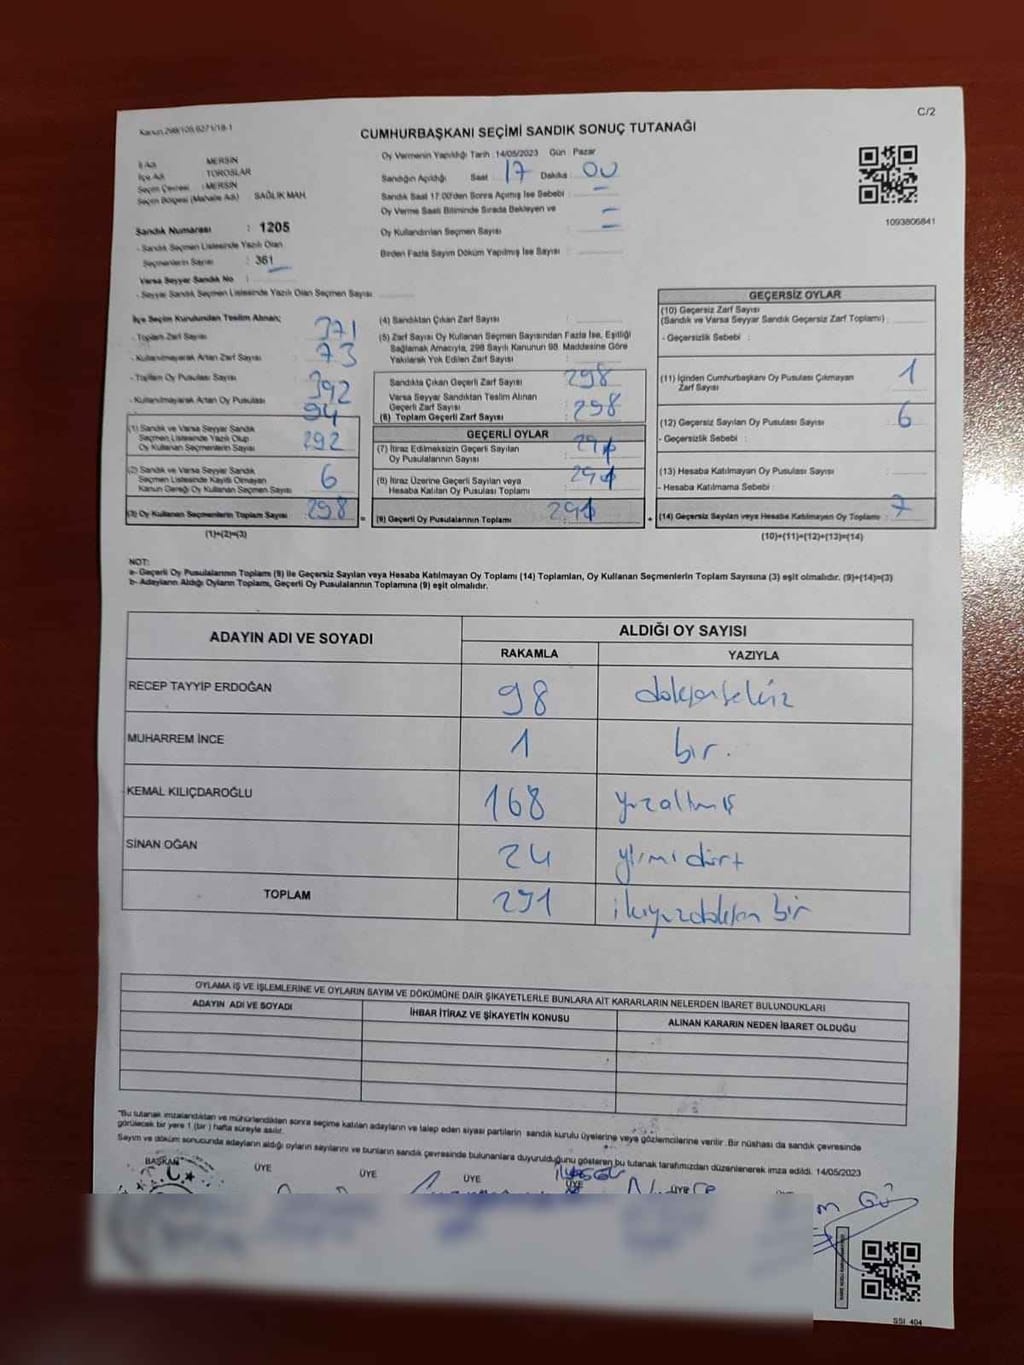 C/2
Kanun 298/105,6271/18-1
CUMHURBAŞKANI SEÇİMİ SANDIK SONUÇ TUTANAĞI
İl Adı MERSİN
İlçe Adı TOROSLAR
Seçim Çevresi : MERSİN
Seçim Bölgesi (Mahalle Adı) SAĞLIK MAH
Sandık Numarası : 1205
- Sandık Seçmen Listesinde Yazılı Olan
Seçmenlerin Sayısı : 361
Varsa Seyyar Sandık No :
- Seyyar Sandık Seçmen Listesinde Yazılı Olan Seçmen Sayısı
Oy Vermenin Yapıldığı Tarih :14/05/2023 Gün Pazar
Sandığın Açıldığı Saat 17 Dakika 00
Sandık Saat 17.00'den Sonra Açılmış İse Sebebi : –
Oy Verme Saati Bitiminde Sırada Bekleyen ve
Oy Kullandırılan Seçmen Sayısı
Birden Fazla Sayım Döküm Yapılmış İse Sayısı :
1093806841
İlçe Seçim Kurulundan Teslim Alınan;
- Toplam Zarf Sayısı 371
- Kullanılmayarak Artan Zarf Sayısı 73
- Toplam Oy Pusulası Sayısı 392
- Kullanılmayarak Artan Oy Pusulası 94
(1) Sandık ve Varsa Seyyar Sandık
Seçmen Listesinde Yazılı Olup
Oy Kullanan Seçmenlerin Sayısı 292
(2) Sandık ve Varsa Seyyar Sandık
Seçmen Listesinde Kayıtlı Olmayan
Kanun Gereği Oy Kullanan Seçmen Sayısı 6
(3) Oy Kullanan Seçmenlerin Toplam Sayısı 298
(1)+(2)=(3)
(4) Sandıktan Çıkan Zarf Sayısı :
(5) Zarf Sayısı Oy Kullanan Seçmen Sayısından Fazla İse, Eşitliği
Sağlamak Amacıyla, 298 Sayılı Kanunun 98. Maddesine Göre
Yakılarak Yok Edilen Zarf Sayısı :
Sandıkta Çıkan Geçerli Zarf Sayısı 298
Varsa Seyyar Sandıktan Teslim Alınan
Geçerli Zarf Sayısı
(6) Toplam Geçerli Zarf Sayısı : 298
GEÇERLİ OYLAR
(7) İtiraz Edilmeksizin Geçerli Sayılan
Oy Pusulalarının Sayısı : 291
(8) İtiraz Üzerine Geçerli Sayılan veya
Hesaba Katılan Oy Pusulası Toplamı : 291
(9) Geçerli Oy Pusulalarının Toplamı 291
GEÇERSİZ OYLAR
(10) Geçersiz Zarf Sayısı
(Sandık ve Varsa Seyyar Sandık Geçersiz Zarf Toplamı) :
- Geçersizlik Sebebi :
(11) İçinden Cumhurbaşkanı Oy Pusulası Çıkmayan
Zarf Sayısı 1
(12) Geçersiz Sayılan Oy Pusulası Sayısı : 6
- Geçersizlik Sebebi :
(13) Hesaba Katılmayan Oy Pusulası Sayısı :
- Hesaba Katılmama Sebebi :
(14) Geçersiz Sayılan veya Hesaba Katılmayan Oy Toplamı : 7
(10)+(11)+(12)+(13)=(14)
NOT:
a- Geçerli Oy Pusulalarının Toplamı (9) ile Geçersiz Sayılan veya Hesaba Katılmayan Oy Toplamı (14) Toplamları, Oy Kullanan Seçmenlerin Toplam Sayısına (3) eşit olmalıdır. (9)+(14)=(3)
b- Adayların Aldığı Oyların Toplamı, Geçerli Oy Pusulalarının Toplamına (9) eşit olmalıdır.
ADAYIN ADI VE SOYADI ALDIĞI OY SAYISI
RAKAMLA YAZIYLA
RECEP TAYYİP ERDOĞAN 98 doksansekiz
MUHARREM İNCE 1 bir.
KEMAL KILIÇDAROĞLU 168 yuzaltmış
SİNAN OĞAN 24 yirmi dört
TOPLAM 291 ikiyuzdoksan bir
OYLAMA İŞ VE İŞLEMLERİNE VE OYLARIN SAYIM VE DÖKÜMÜNE DAİR ŞİKAYETLERLE BUNLARA AİT KARARLARIN NELERDEN İBARET BULUNDUKLARI
ADAYIN ADI VE SOYADI İHBAR İTİRAZ VE ŞİKAYETİN KONUSU ALINAN KARARIN NEDEN İBARET OLDUĞU
*Bu tutanak imzalandıktan ve mühürlendikten sonra seçime katılan adayların ve talep eden siyasi partilerin sandık kurulu üyelerine veya gözlemcilerine verilir. Bir nüshası da sandık çevresinde
görülecek bir yere 1 (bir ) hafta süreyle asılır.
Sayım ve döküm sonucunda adayların aldığı oyların sayılarını ve bunların sandık çevresinde bulunanlara duyurulduğunu gösteren bu tutanak tarafımızdan düzenlenerek imza edildi. 14/05/2023
BAŞKAN ÜYE ÜYE ÜYE ÜYE ÜYE ÜYE
SSI_404